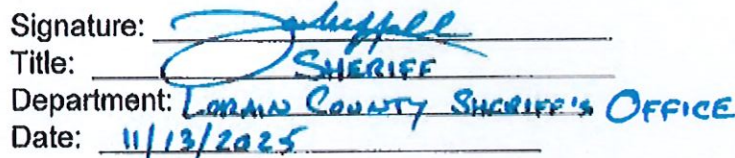 Signature:
Title: SHERIFF
Department: LORAIN COUNTY SHERIFF'S OFFICE
Date: 11/13/2025